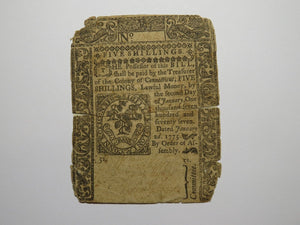 No
FIVE SHILLINGS.
THE Possessor of this BILL,
shall be paid by the Treasurer
of the Colony of Connecticut, FIVE
SHILLINGS, Lawful Money, by
the second Day
of January, One
thousand seven
hundred and
seventy seven.
Dated January
2d. 1775
By Order of As-
sembly.
5s.
Committee.